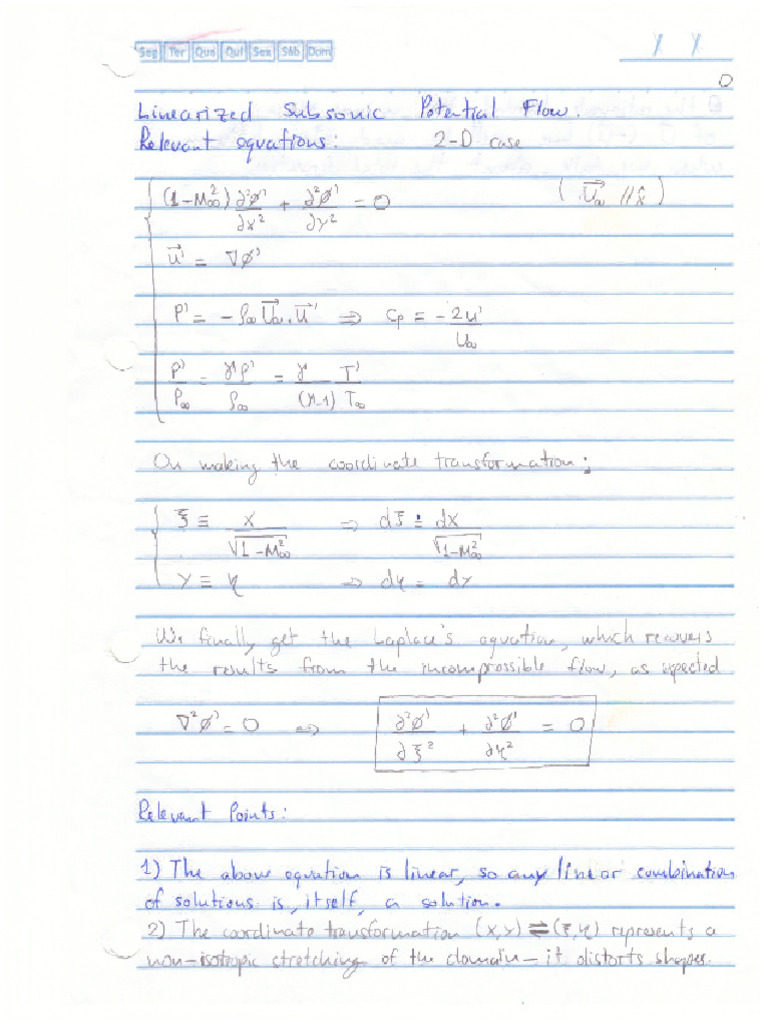 Seg Ter Qua Qui Sex Sáb Dom
Linearized Subsonic Potential Flow:
Relevant equations: 2-D case
(1-M∞²) ∂²ø'/∂x² + ∂²ø'/∂y² = 0 (U⃗∞ // x̂)
u⃗' = ∇ø'
P' = - ρ∞ U⃗∞ . u⃗' ⇒ Cp = - 2u'/U∞
P'/P∞ = γρ'/ρ∞ = γ/(γ-1) T'/T∞
On making the coordinate transformation:
ξ ≡ x/√(1-M∞²) ⇒ dξ = dx/√(1-M∞²)
y ≡ η ⇒ dη = dy
We finally get the Laplace's equation, which recovers
the results from the incompressible flow, as expected
∇²ø' = 0 ⇒ ∂²ø'/∂ξ² + ∂²ø'/∂η² = 0
Relevant Points:
1) The above equation is linear, so any linear combination
of solutions is, itself, a solution.
2) The coordinate transformation (x,y) ⇌ (ξ,η) represents a
non-isotropic stretching of the domain - it distorts shapes.